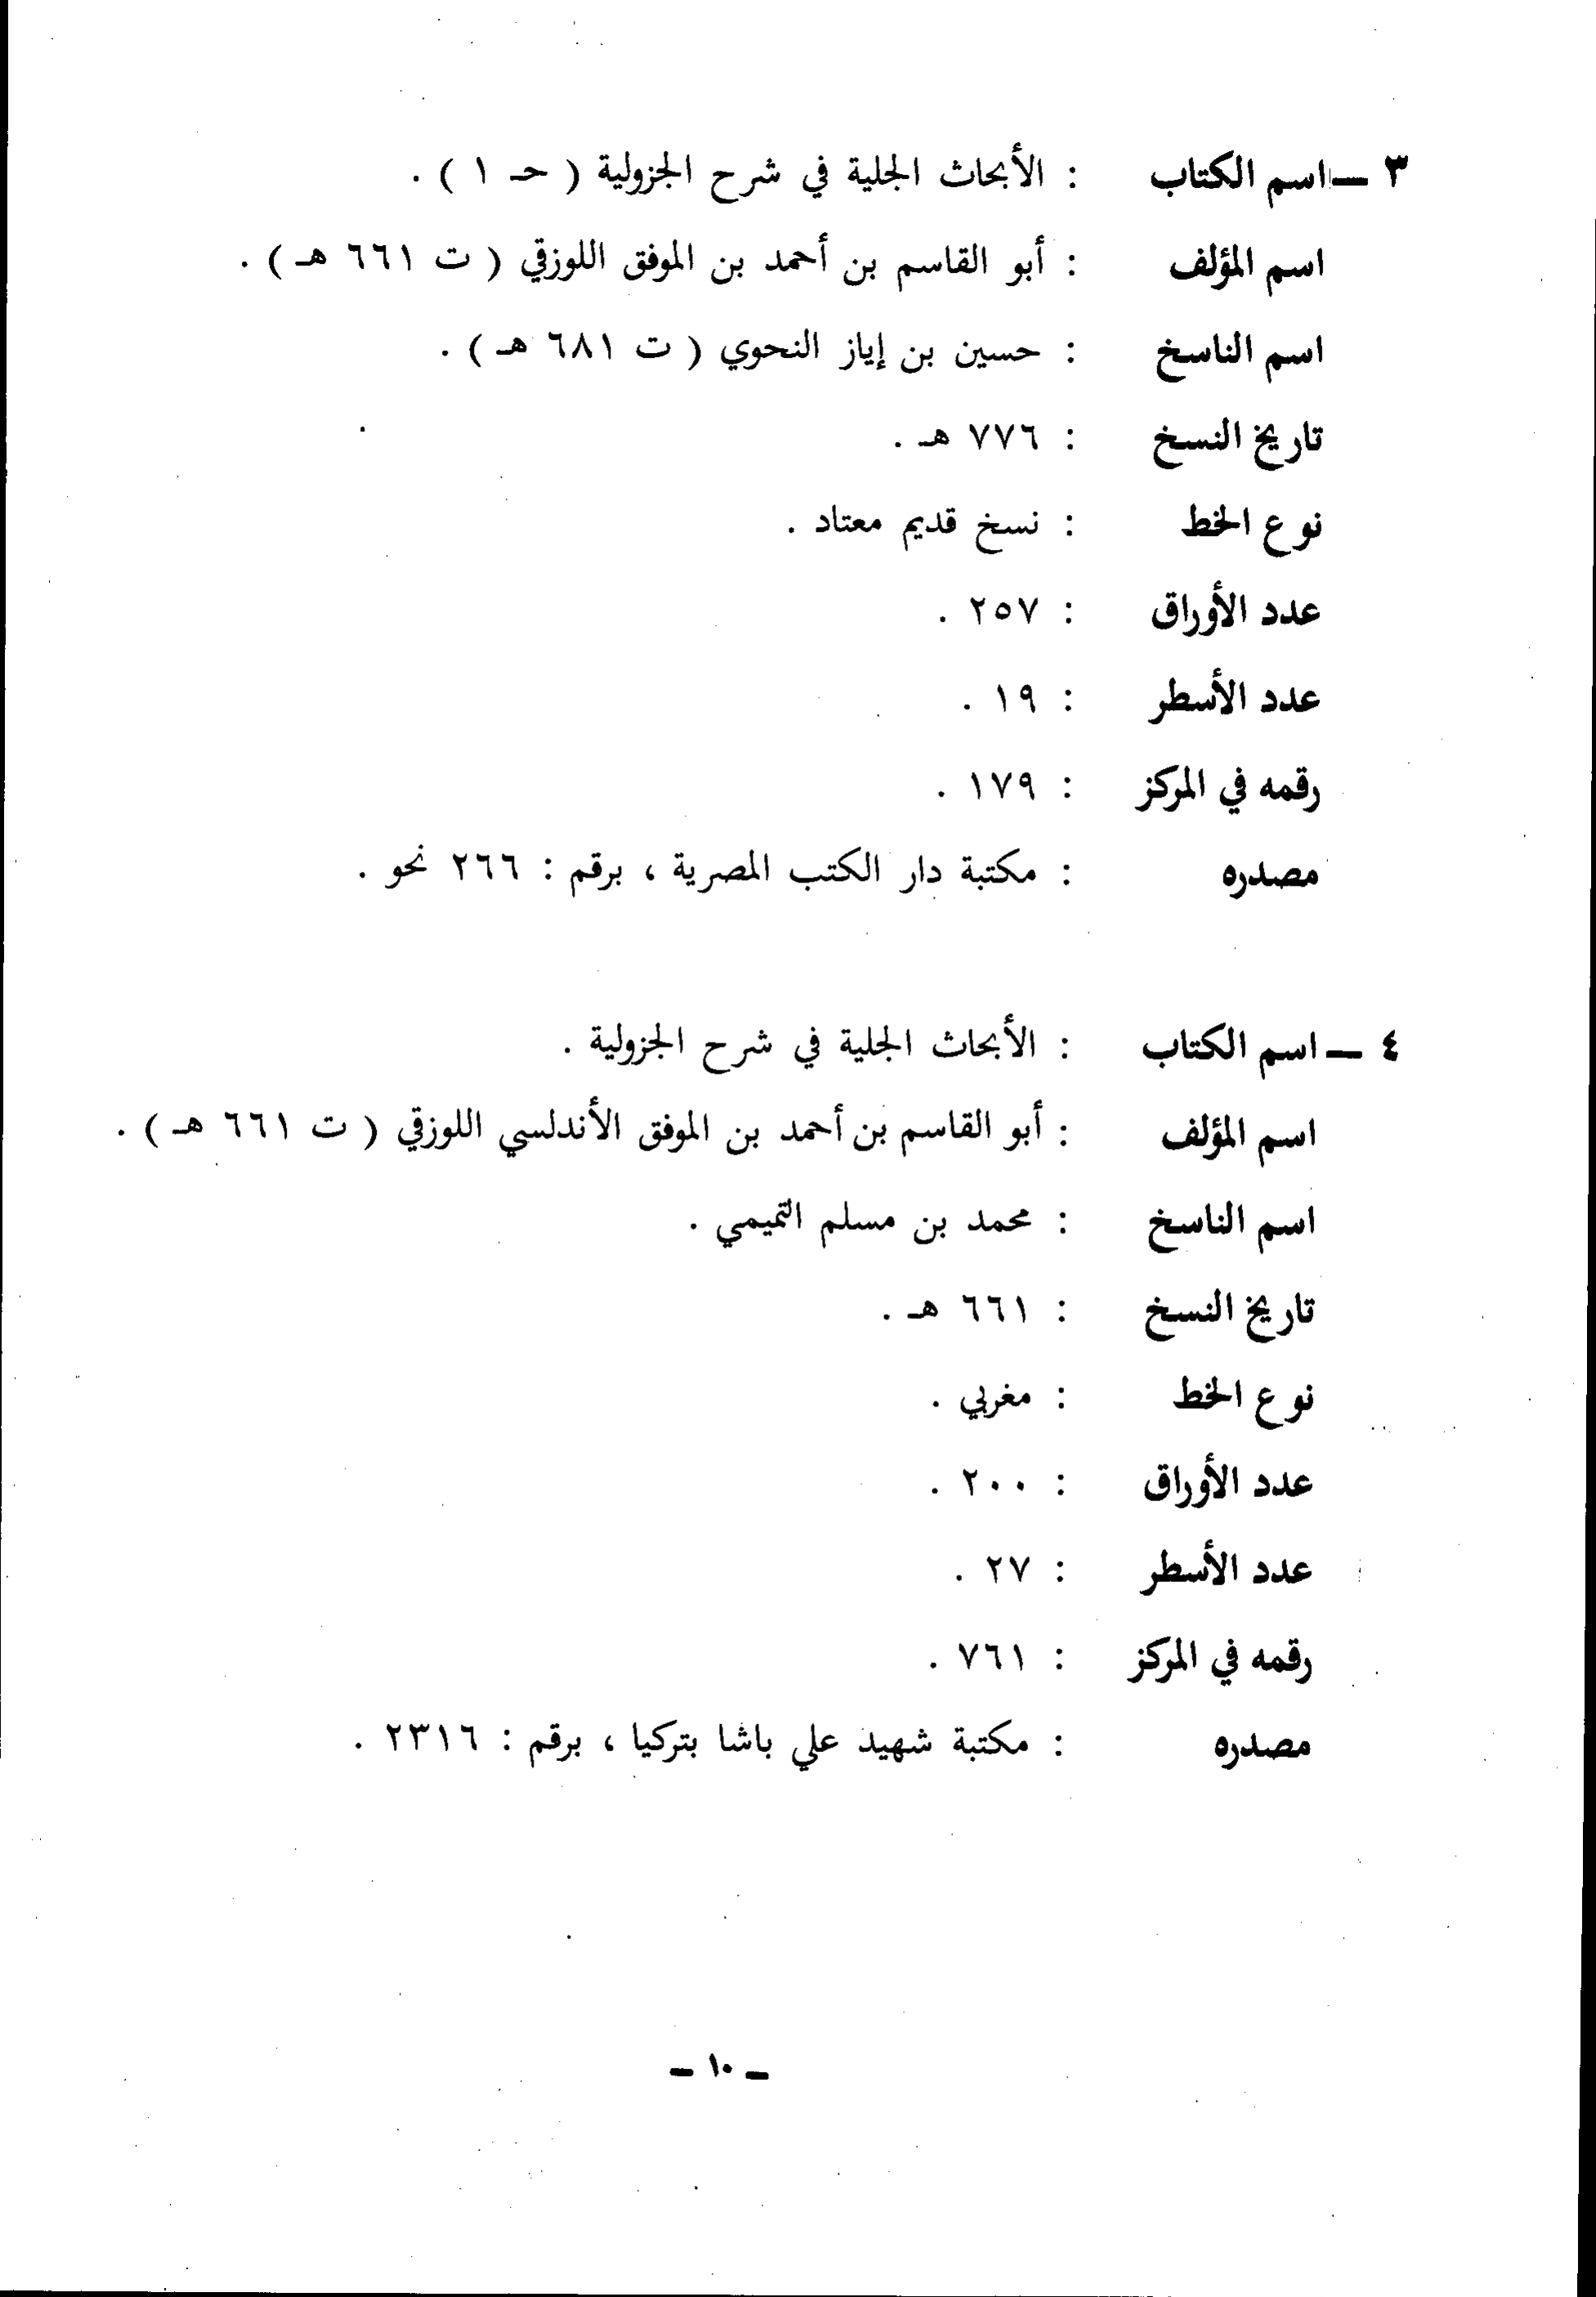 ٣ — اسم الكتاب : الأبحاث الجلية في شرح الجزولية ( حـ ١ ) .
اسم المؤلف : أبو القاسم بن أحمد بن الموفق اللوزقي ( ت ٦٦١ هـ ) .
اسم الناسخ : حسين بن إياز النحوي ( ت ٦٨١ هـ ) .
تاريخ النسخ : ٧٧٦ هـ .
نوع الخط : نسخ قديم معتاد .
عدد الأوراق : ٢٥٧ .
عدد الأسطر : ١٩ .
رقمه في المركز : ١٧٩ .
مصدره : مكتبة دار الكتب المصرية ، برقم : ٢٦٦ نحو .
٤ — اسم الكتاب : الأبحاث الجلية في شرح الجزولية .
اسم المؤلف : أبو القاسم بن أحمد بن الموفق الأندلسي اللوزقي ( ت ٦٦١ هـ ) .
اسم الناسخ : محمد بن مسلم التميمي .
تاريخ النسخ : ٦٦١ هـ .
نوع الخط : مغربي .
عدد الأوراق : ٢٠٠ .
عدد الأسطر : ٢٧ .
رقمه في المركز : ٧٦١ .
مصدره : مكتبة شهيد علي باشا بتركيا ، برقم : ٢٣١٦ .
– ١٠ –